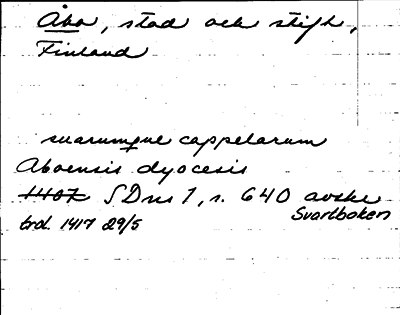 Åbo, stad och stift,
Finland
suarumque cappelarum
Aboensis dyocesis
1407 SDns 1, s. 640 avskr
Svartboken
trol. 1417 29/5